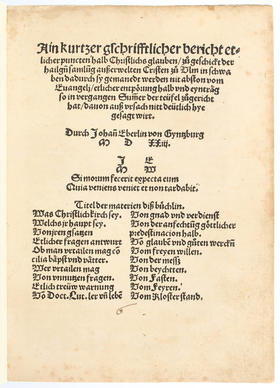 Ain kurtzer gschrifftlicher bericht et-
licher puncten halb Christlichs glauben / zů geschickt der
hailgñ samlũg außerwelten Cristen zů Vlm in schwa
ben dadurch sy gemanedt werden nit abston vom
Euangelj / etlicher entpörung halb vnd eynträg
so in vergangen Sum̃er der teüfel zůgericht
hat / dauon auß vrsach nitt deütlich hye
gesagt wirt.
Durch Johañ Eberlin von Gyntzburg
M D XXiij.
J E
M W
Si moram fecerit expecta eum
Quia veniens veniet et non tardabit.
Titel der materien diß büchlin.
Was Christlich kirch sey.
Welchs jr haupt sey.
Von jren gsatzen
Etlicher fragen antwurt
Ob man vrtailen mag cõ
cilia bäpst vnd vätter.
Wer vrtailen mag
Von vnnutzen fragen.
Etlich treüw warnung
Võ Doct. Lut. ler vñ lebẽ
Von gnad vnd verdienst
Von der anfechtũg göttlicher
predestinacion halb.
Von glaubẽ vnd gůten werckñ
Vom freyen willen.
Von der messz
Von beychtten.
Von Fasten.
Vom Feyren.
Vom Kloster stand.